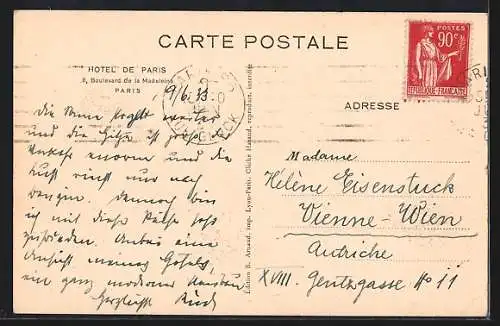 CARTE POSTALE
HOTEL DE PARIS
8, Boulevard de la Madeleine
PARIS
POSTES
90c
REPUBLIQUE FRANÇAISE
ADRESSE
9/6.33
Die Sonne
und die Hitze ist
Verkehr enorm und die
Luft riecht nur nach
Benzin. Dennoch bin
ich mit dieser Reise sehr
zufrieden. Anbei eine
Ansicht meines Hotels,
ein ganz moderner
Herzlichst
Edition R. Arnaud, imp. Lyon-Paris. Cliché Hanaud, reproduct. interdite
Madame
Hélène Eisenstuck
Vienne-Wien
Autriche
XVIII. Gentzgasse No 11